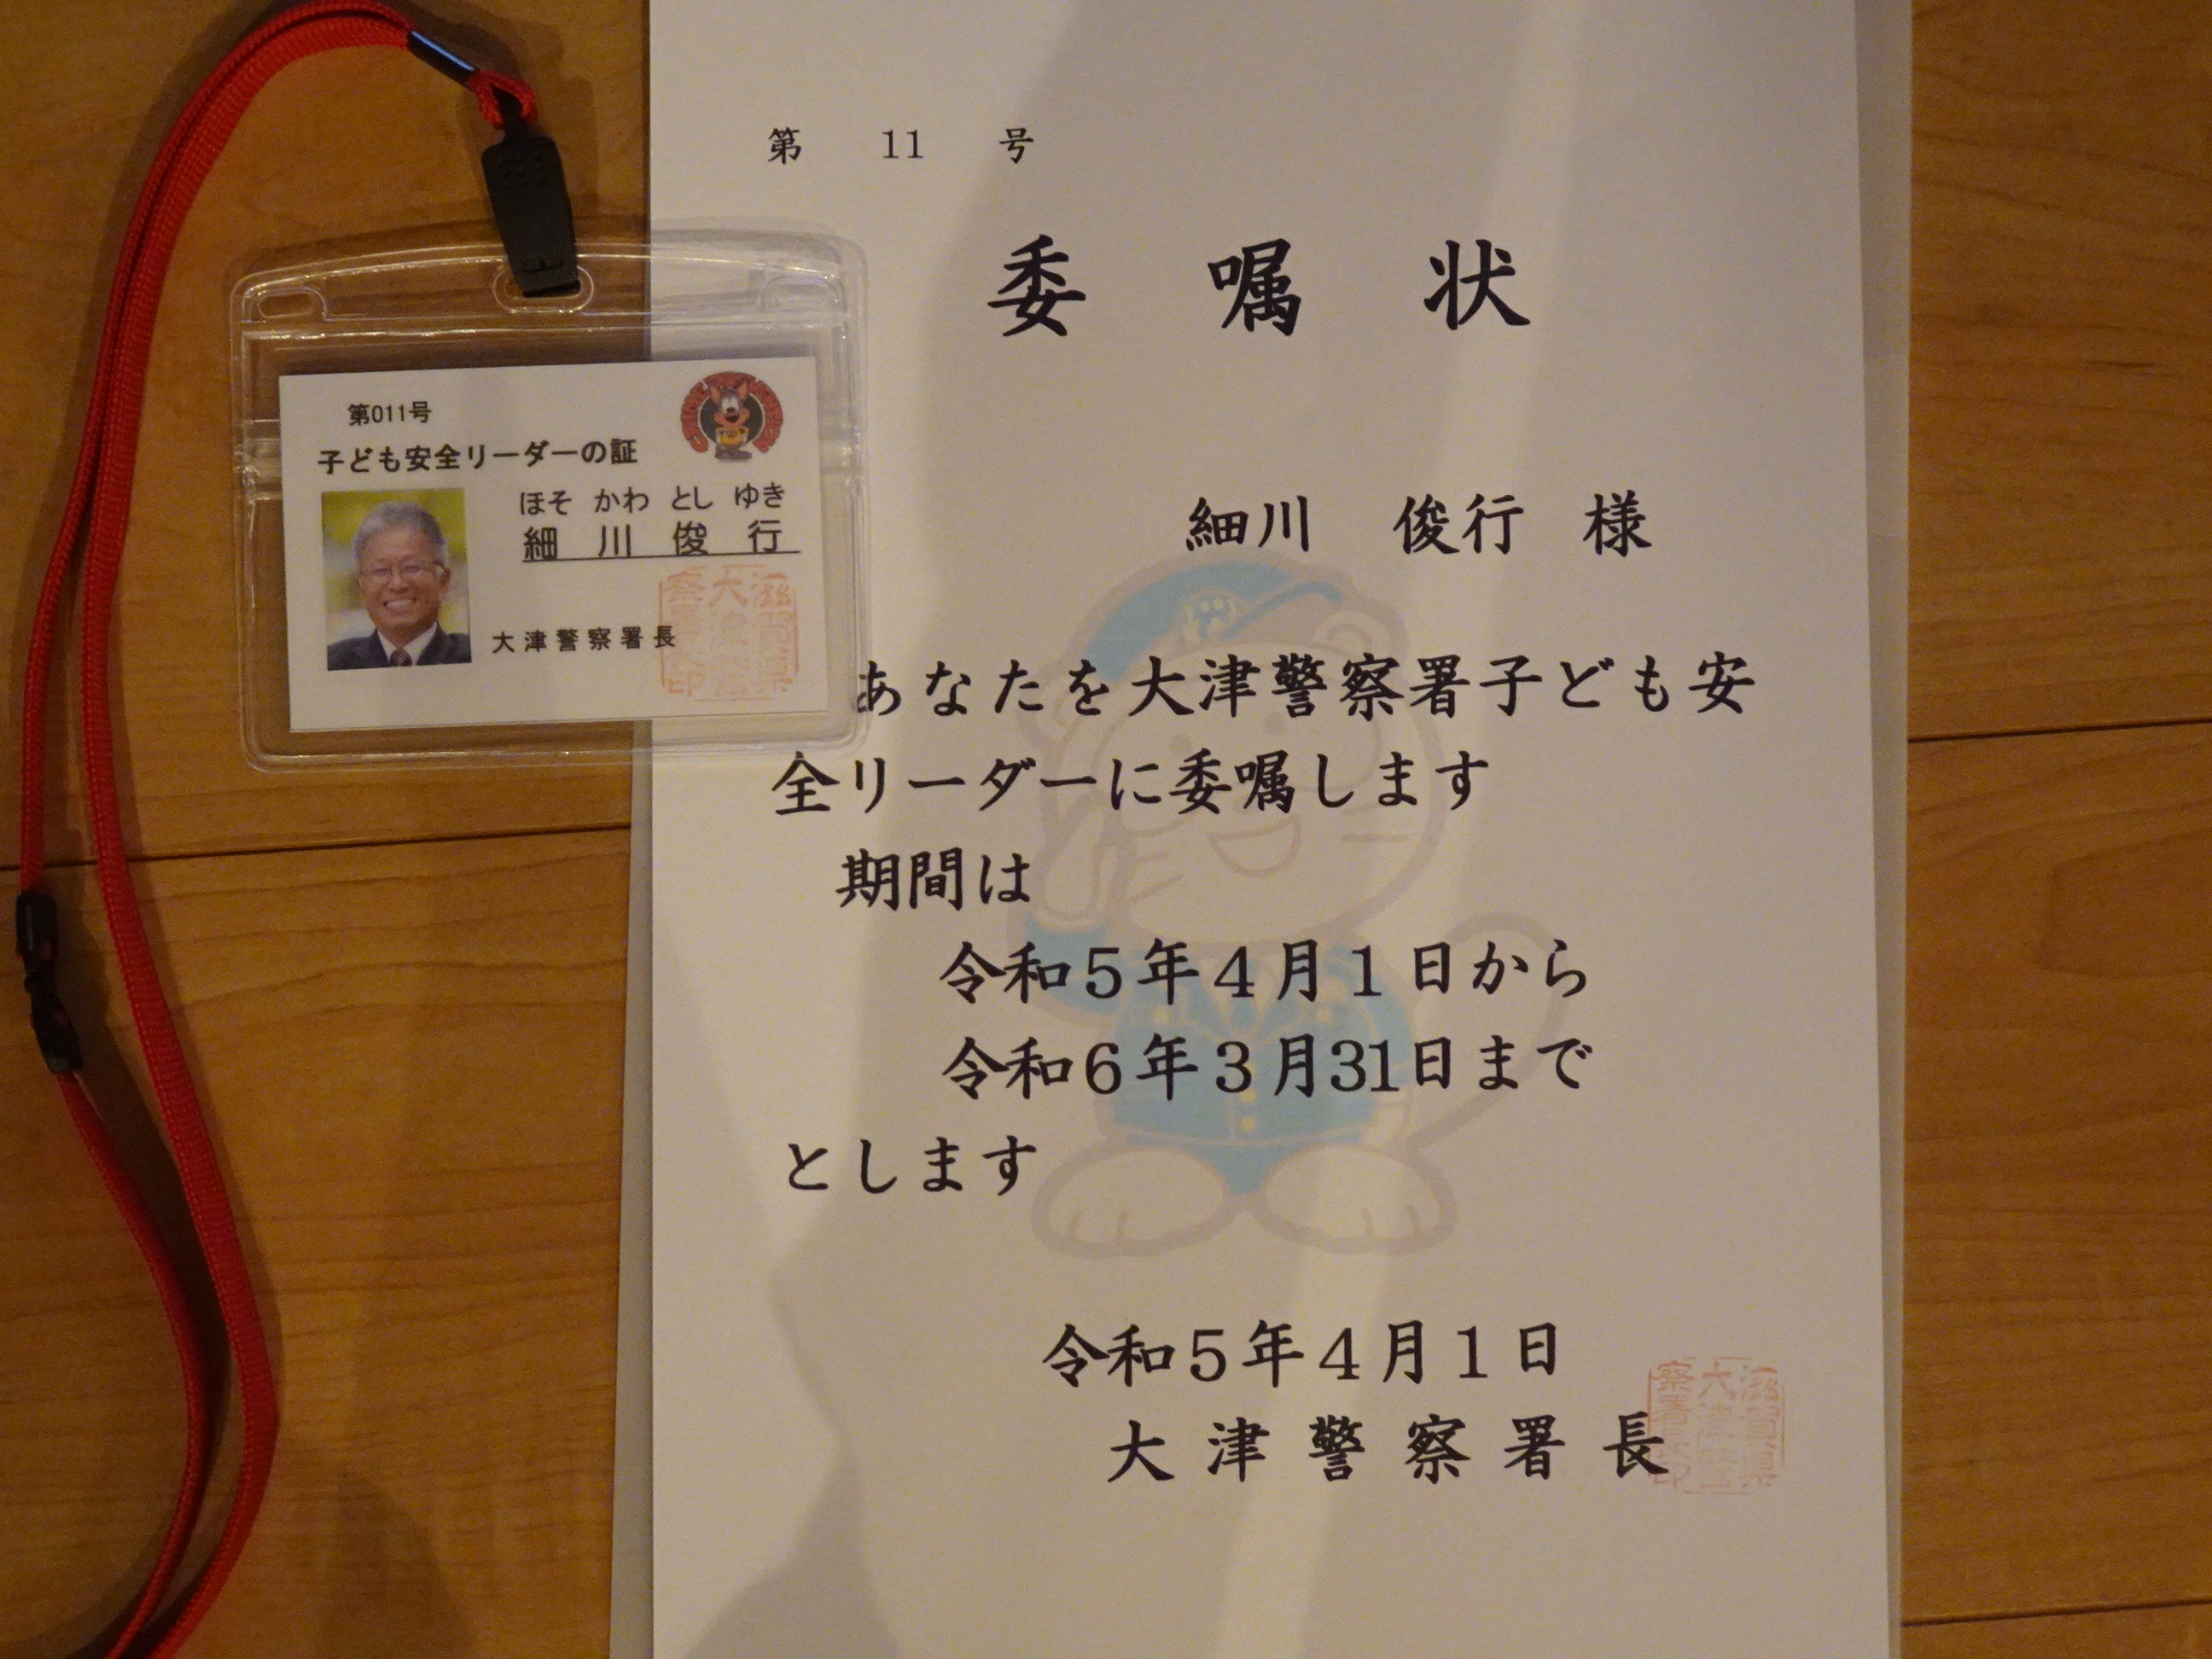 第011号
子ども安全リーダーの証
ほそ かわ とし ゆき
細 川 俊 行
大津警察署長
第 11 号
委 嘱 状
細川 俊行 様
あなたを大津警察署子ども安
全リーダーに委嘱します
期間は
令和5年4月1日から
令和6年3月31日まで
とします
令和5年4月1日
大津警察署長